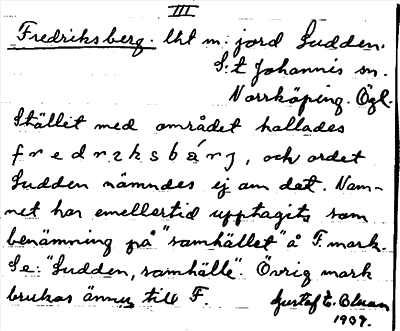 III
Fredriksberg. lht m: jord Sudden.
S:t Johannis sn.
Norrköping. Ögl.
Stället med området kallades
fredrıksbárj, och ordet
Sudden nämndes ej om dat. Nam-
net har emellertid upptagits som
benämning på "samhället" å F. mark.
Se: "Sudden, samhälle". Övrig mark
brukas ännu till F.
Gustaf E. Bluan
1937.